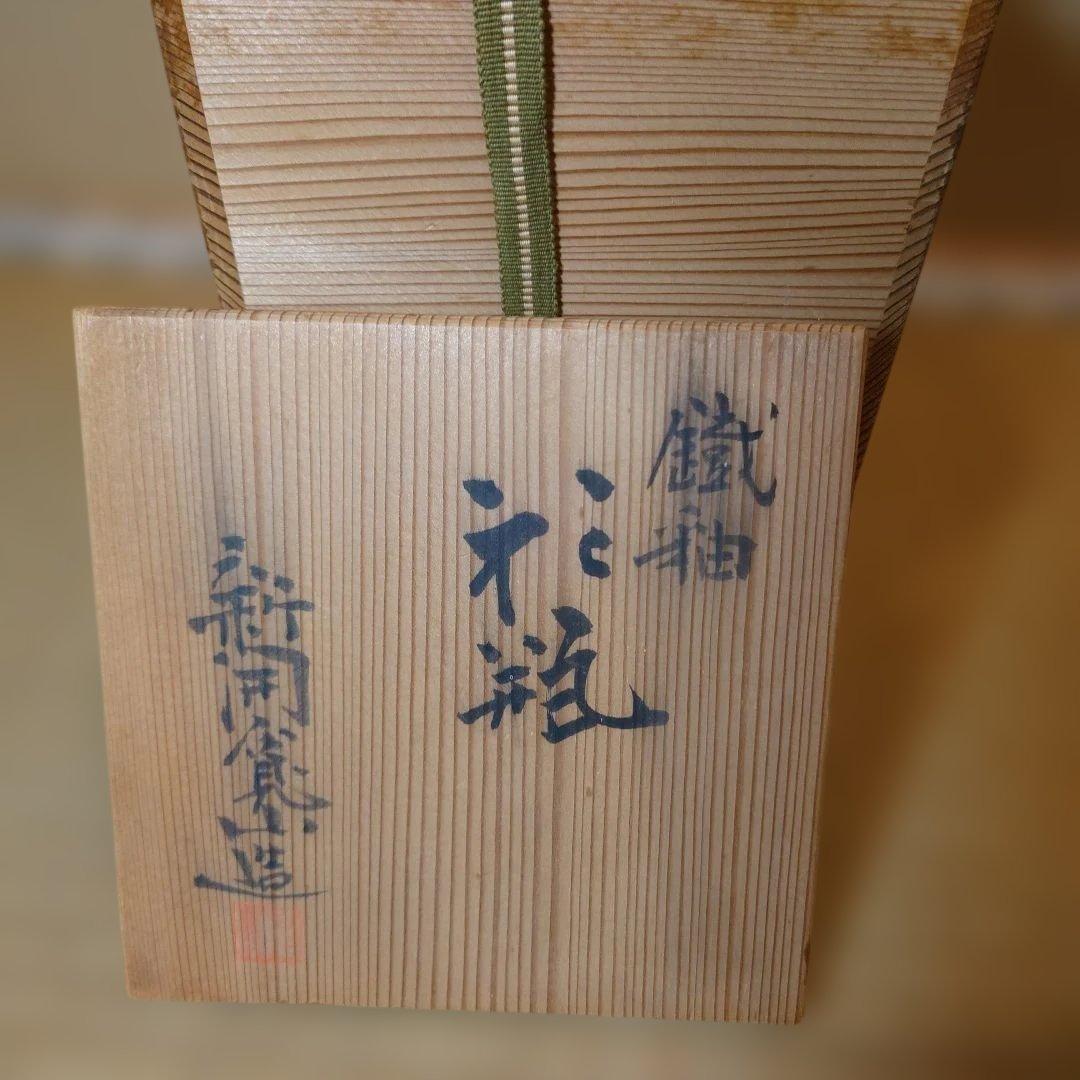 鐵釉
花瓶
新開寛山造